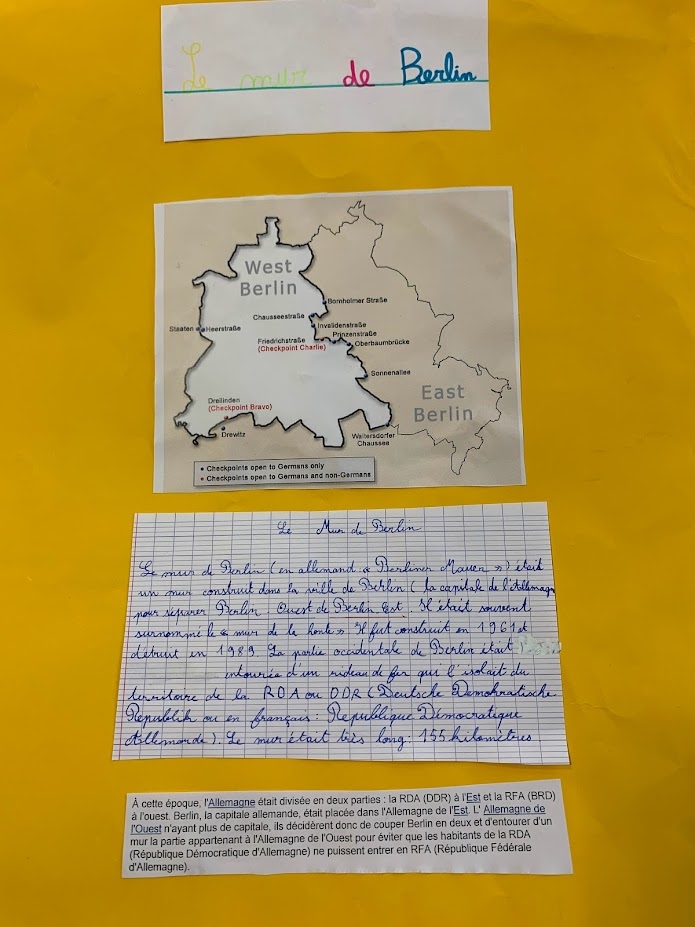 Le mur de Berlin
West
Berlin
Bornholmer Straße
Chausseestraße
Invalidenstraße
Staaten
Heerstraße
Prinzenstraße
Friedrichstraße
(Checkpoint Charlie)
Oberbaumbrücke
Sonnenallee
Dreilinden
(Checkpoint Bravo)
East
Berlin
Drewitz
Waltersdorfer
Chaussee
Checkpoints open to Germans only
Checkpoints open to Germans and non-Germans
Le Mur de Berlin
Le mur de Berlin (en allemand : « Berliner Mauer ») était
un mur construit dans la ville de Berlin (la capitale de l'Allemagne
pour séparer Berlin Ouest de Berlin Est. Il était souvent
surnommé le « mur de la honte » Il fut construit en 1961 et
détruit en 1989 La partie occidentale de Berlin était
entourée d'un rideau de fer qui l'isolait du
territoire de la RDA ou DDR (Deutsche Demokratische
Republik ou en français : République Démocratique
Allemande). Le mur était très long : 155 kilomètres
À cette époque, l'Allemagne était divisée en deux parties : la RDA (DDR) à l'Est et la RFA (BRD)
à l'ouest. Berlin, la capitale allemande, était placée dans l'Allemagne de l'Est. L' Allemagne de
l'Ouest n'ayant plus de capitale, ils décidèrent donc de couper Berlin en deux et d'entourer d'un
mur la partie appartenant à l'Allemagne de l'Ouest pour éviter que les habitants de la RDA
(République Démocratique d'Allemagne) ne puissent entrer en RFA (République Fédérale
d'Allemagne).